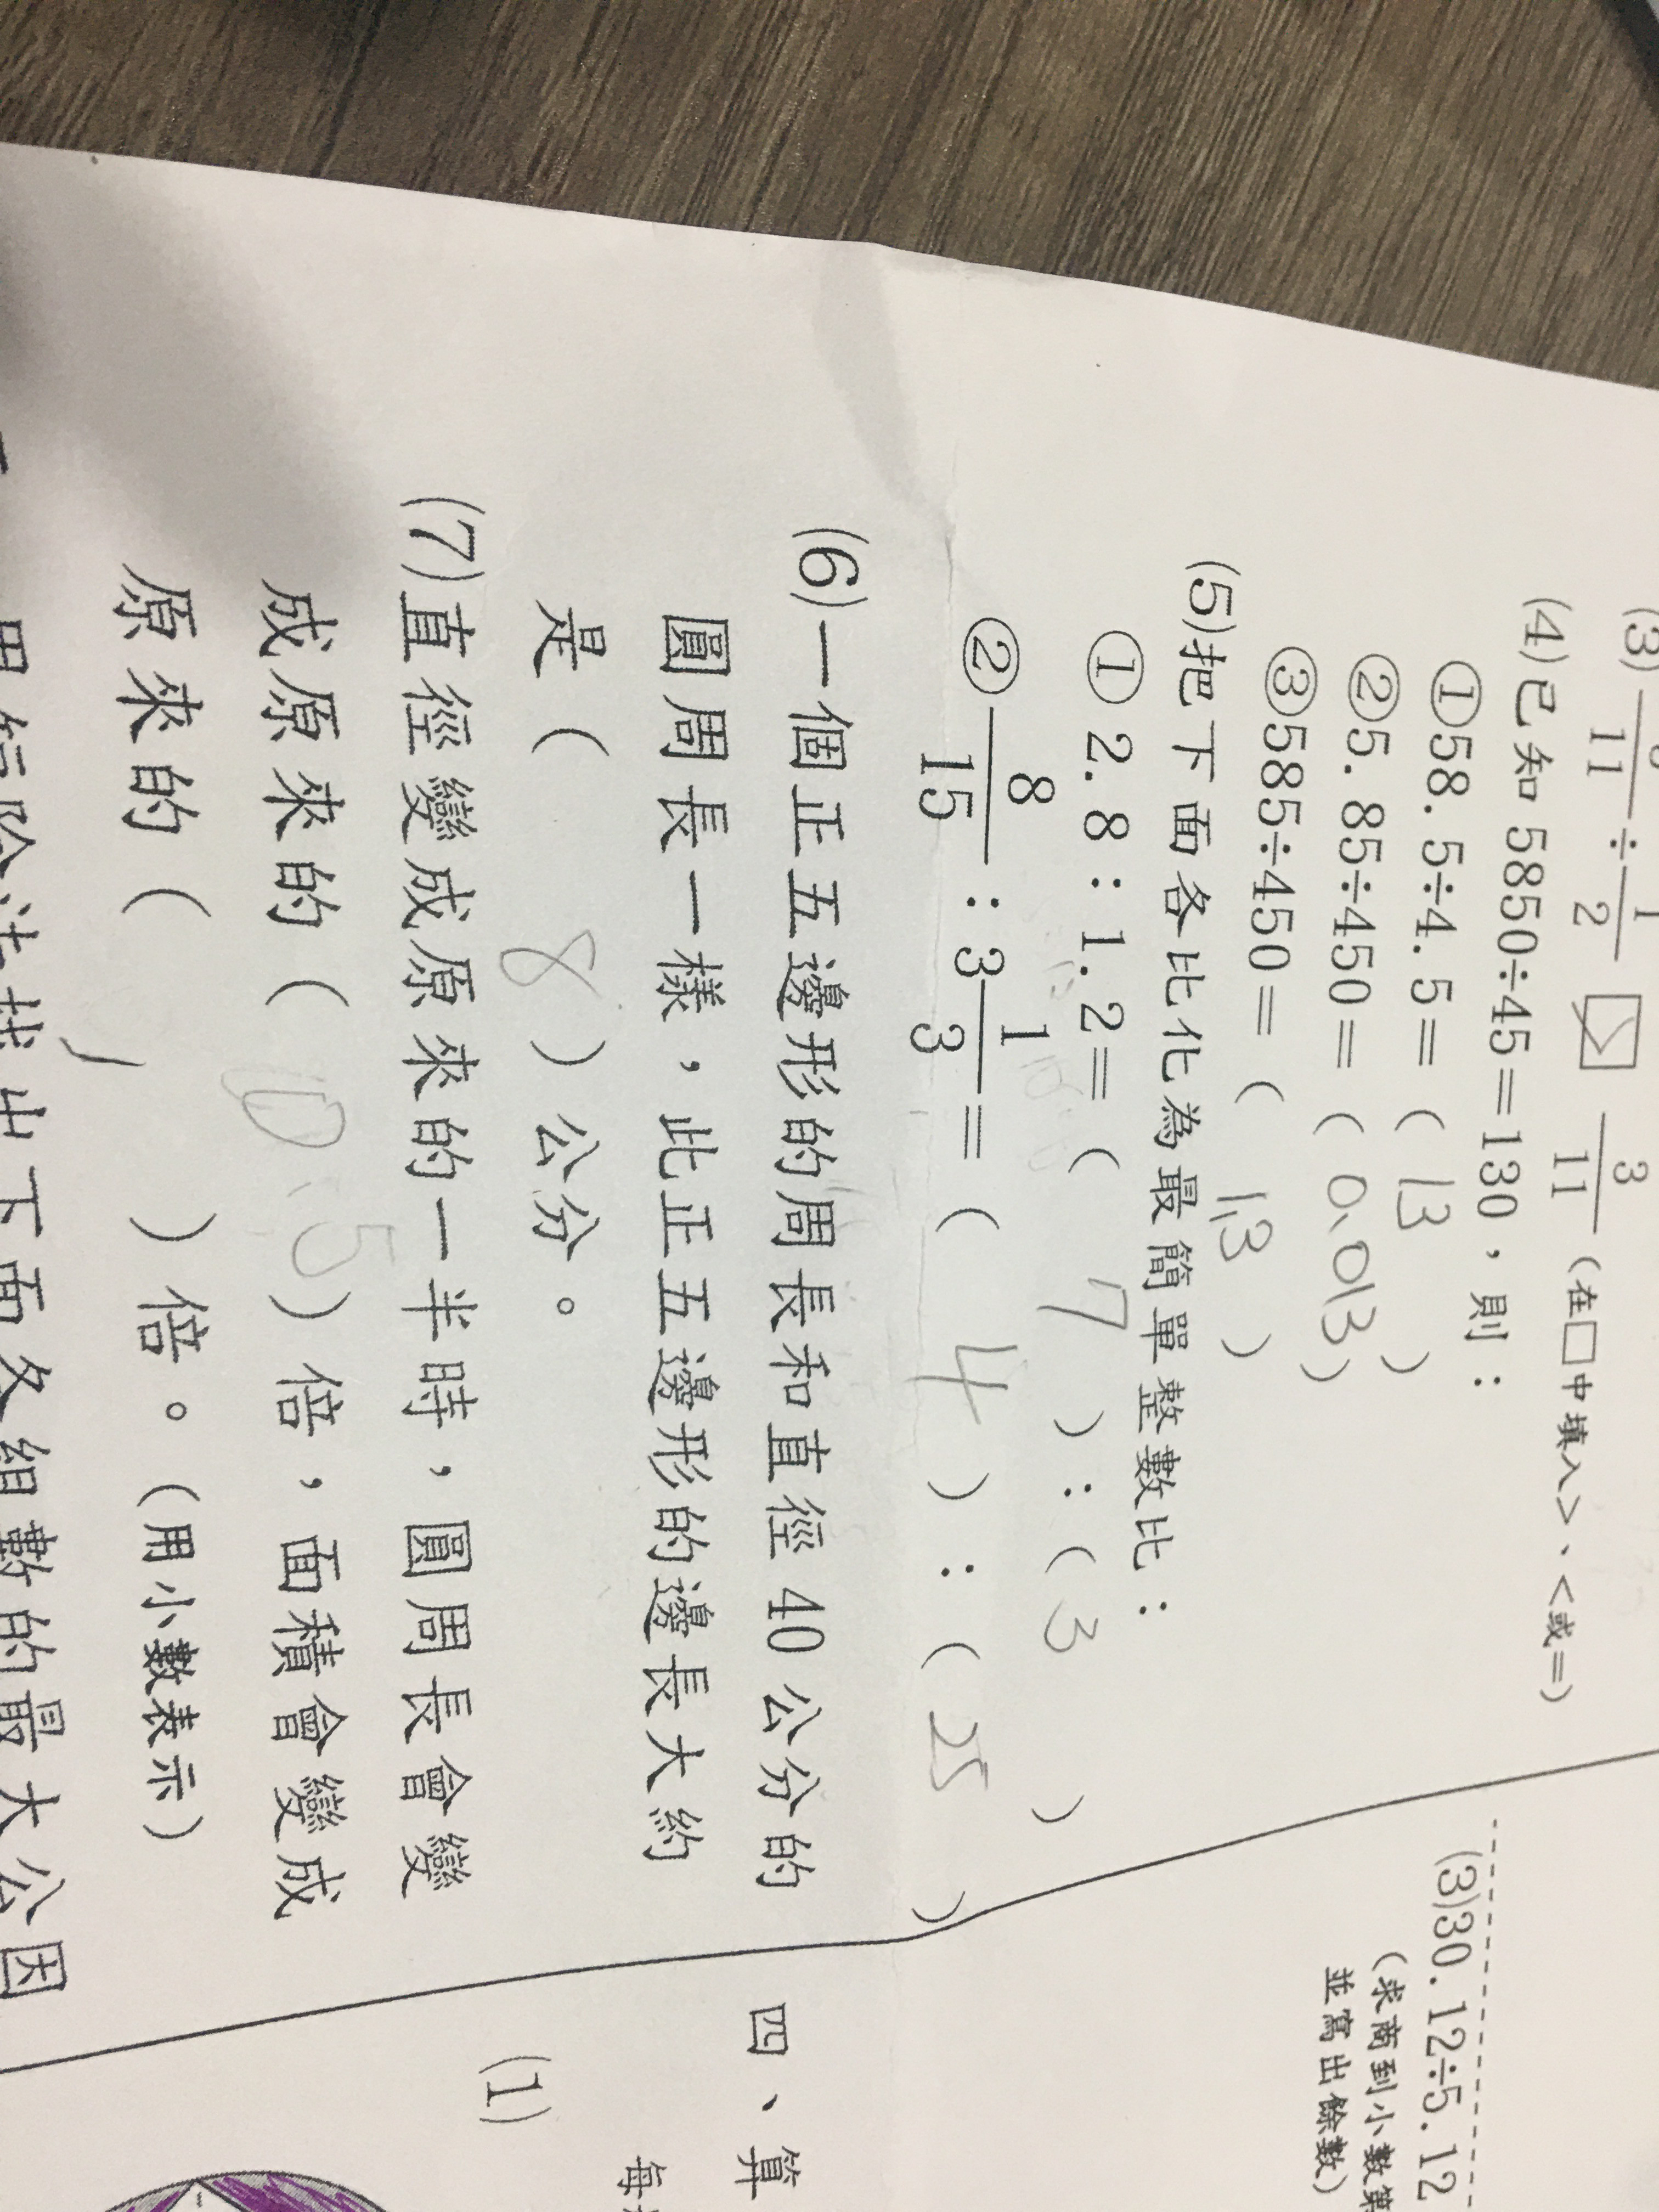 (3) /11 ÷ 1/2 □ 3/11 (在□中填入>、<或=)
(4)已知5850÷45=130,則:
①58.5÷4.5=( 13 )
②5.85÷450=( 0.013 )
③585÷450=( 1.3 )
(5)把下面各比化為最簡單整數比:
①2.8:1.2=( 7 ):( 3 )
②8/15:3 1/3=( 4 ):( 25 )
(6)一個正五邊形的周長和直徑40公分的
圓周長一樣,此正五邊形的邊長大約
是( 8 )公分。
(7)直徑變成原來的一半時,圓周長會變
成原來的( 0.5 )倍,面積會變成
原來的( )倍。(用小數表示)
下面各組數的最大公因
(3)30.12÷5.12
(求商到小數第
並寫出餘數)
四、算
(1)
每